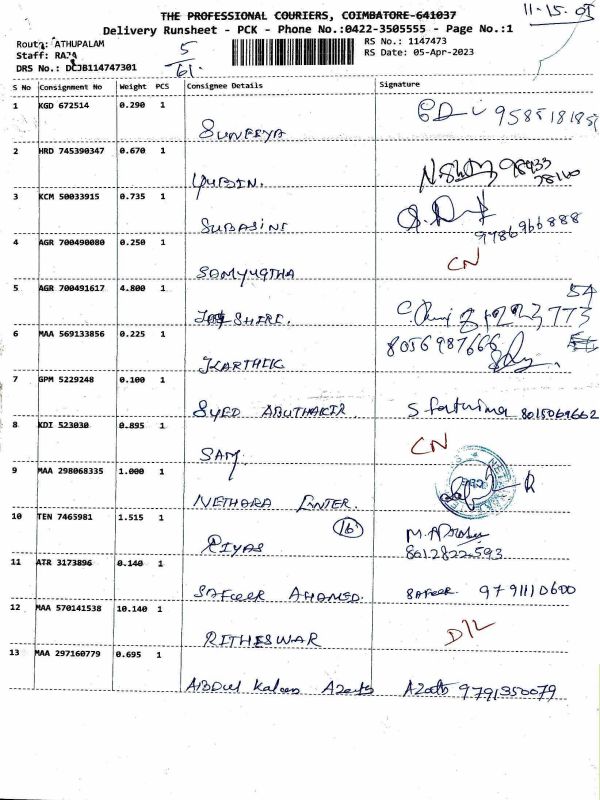 THE PROFESSIONAL COURIERS, COIMBATORE-641037
11-15.05
Delivery Runsheet - PCK - Phone No.:0422-3505555 - Page No.:1
Route: ATHUPALAM 5 RS No.: 1147473
Staff: RAJA 61. RS Date: 05-Apr-2023
DRS No.: DCJB114747301
S No Consignment No Weight PCS Consignee Details Signature
1 KGD 672514 0.290 1
2 HRD 745390347 0.670 1
YUBIN.
3 KCM 50033915 0.735 1
SUBASINI 9786966888
4 AGR 700490080 0.250 1 CN
SAMYUGTHA
5 AGR 700491617 4.800 1
SHIRE.
6 MAA 569133856 0.225 1 8056987666
KARTHIK
7 GPM 5229248 0.100 1
SYED ABUTHAKIR S fathima 8015069662
8 KDI 523030 0.895 1 CN
SAM.
9 MAA 298068335 1.000 1
NETHARA ENTER.
10 TEN 7465981 1.515 1 16
RIYAS 8012822593
11 ATR 3173896 0.140 1
SAFEER AHAMED. SAFEER 9791110600
12 MAA 570141538 10.140 1 D/L
RITHESWAR
13 MAA 297160779 0.695 1
ABDUL Kalam Azath Azath 9791350079